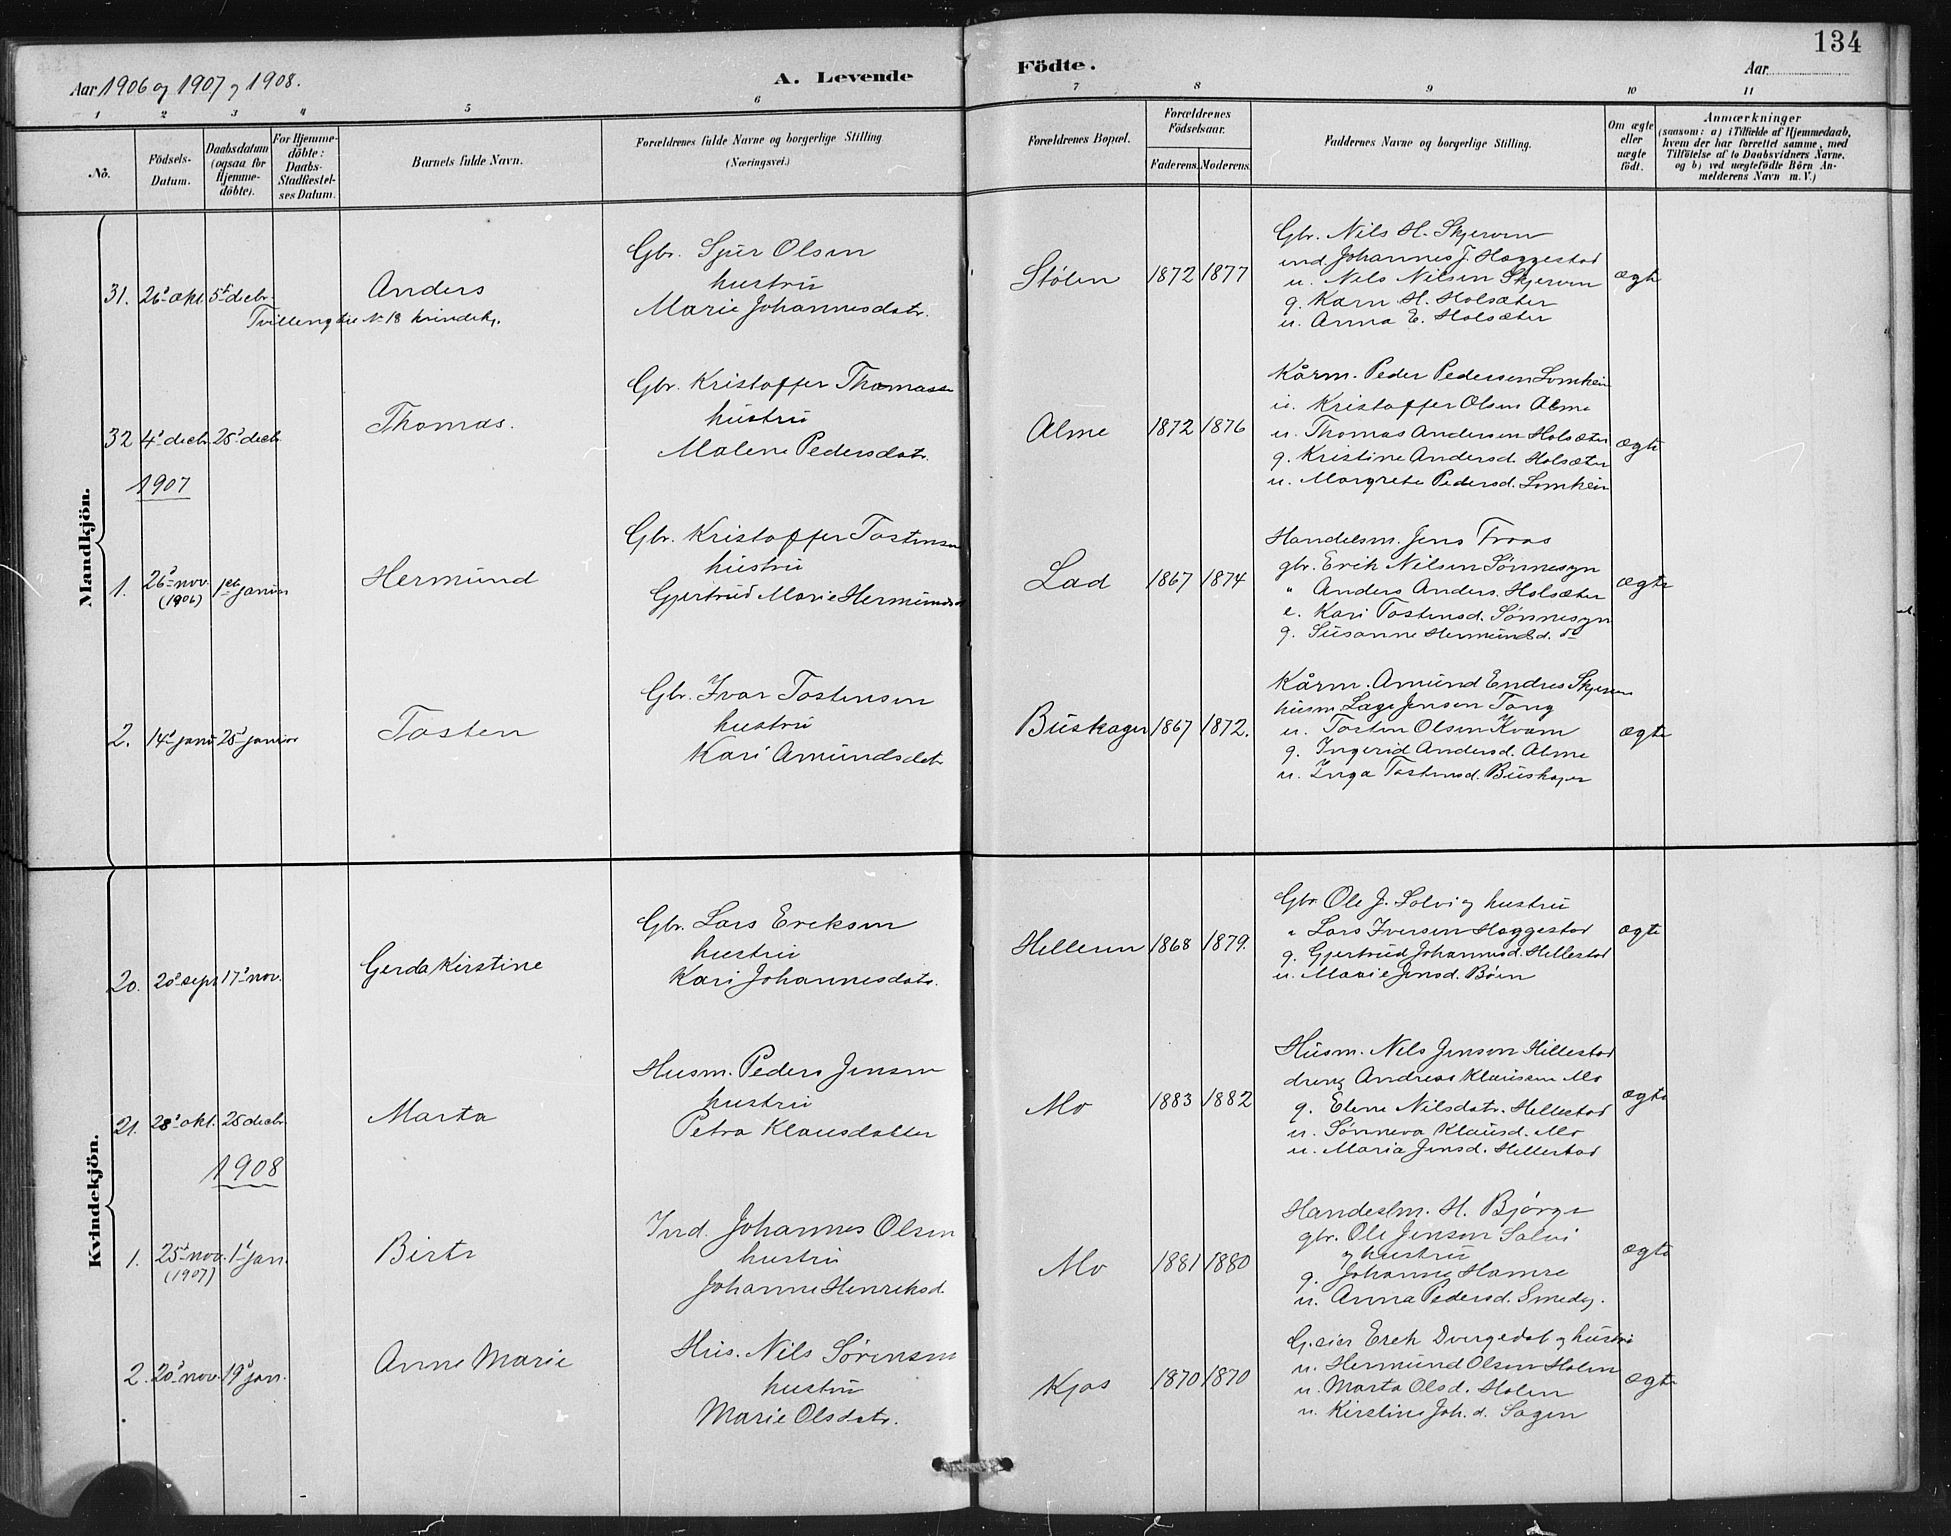 134
Aar 1906 og 1907 og 1908.
A. Levende
Födte.
Aar
1 2 3 4 5 6 7 8 9 10 11
Nô.
Födsels-
Datum.
Daabsdatum
(ogsaa for
Hjemme-
döbte).
For Hjemme-
döbte:
Daabs-
Stadfæstel-
ses Datum.
Barnets fulde Navn.
Forældrenes fulde Navne og borgerlige Stilling
(Næringsvei.)
Forældrenes Bopæl.
Forældrenes
Födselsaar.
Faderens. Moderens.
Faddernes Navne og borgerlige Stilling.
Om ægte
eller
uægte
födt.
Anmærkninger
(saasom: a) i Tilfælde af Hjemmedaab,
hvem der har forrettet samme, med
Tilföielse af to Daabsvidners Navne.
og b) ved uægtefödte Börn An-
melderens Navn m. V.)
Mandkjön.
31. 26de okt. 5te decbr.
Anders
Tvilling til No 18 kvindekj.
Gbr. Sjur Olsen
hustru
Marie Johannesdatr.
Stölen 1872 1877
Gbr. Nils H. Skjerven
ind. Johannes J. Haggestad
u. Nils Nilsen Skjerven
g. Karn H. Holsæter
u. Anna E. Holsæter
ægte
32 4de decbr. 25de decbr.
Thomas.
Gbr. Kristoffer Thomassen
hustru
Malene Pedersdatr.
Alme 1872 1876
Kårm. Peder Pedersen Lomheim
u. Kristoffer Olsen Alme
u. Thomas Andersen Holsæter
g. Kristine Andersd. Holsæter
u. Margrete Pedersd. Lomheim
ægte
1907
1. 26de nov. (1906) 1ste januar
Hermund
Gbr. Kristoffer Tostensen
hustru
Gjertrud Marie Hermundsd.
Lad 1867 1874
Handelsm. Jens Fraas
gbr. Erik Nilsen Sönnesyn
" Anders Anders. Holsæter
e. Kari Tostensd. Sönnesyn
g. Susanne Hermundsd. do
ægte
2. 14de janu 25de januar
Tosten
Gbr. Ivar Tostensen
hustru
Kari Amundsdatr.
Buskager 1867 1872.
Kårm. Amund Endres. Skjerven
husm. Lage Jensen Tang
u. Tosten Olsen Kvam
g. Ingerid Andersd. Alme
u. Inga Tostensd. Buskager
ægte
Kvindekjön.
20. 20de sept 17de nov.
Gerda Kirstine
Gbr. Lars Eriksen
hustru
Kari Johannesdatr.
Helleren 1868 1879.
Gbr Ole J. Solvi og hustru
" Lars Iversen Haggestad
g. Gjertrud Johannesd. Hellestad
u. Marie Jensd. Böen
ægte
21. 28de okt. 26 decbr.
Marta
Husm. Peders Jensen
hustru
Petra Klausdatter
Mo 1883 1882
Husm. Nils Jenson Hillestad
dreng Andreas Klausen Mo
g. Elene Nilsdatr. Hellestad
u. Sönneva Klausd. Mo
u. Maria Jensd. Hellestad
ægte
1908
1. 25de nov. (1907) 1ste jan.
Birte
Ind. Johannes Olsen
hustru
Johanne Henriksd.
Mo 1881 1880
Handelsm. H. Björge
gbr. Ole Jenson Solvi
og hustru
g. Johanne Hamre
u. Anna Pedersd. Smedeg.
ægte
2. 20de nov. 19de jan.
Anne Marie
Hus. Nils Sörensen
hustru
Marie Olsdatr.
Kjos 1870 1870
G.eier Erek Dvergedal og hustru
u. Hermund Olsen Holen
u. Marta Olsd. Holen
u. Kirstine Joh.d. Sagen
ægte